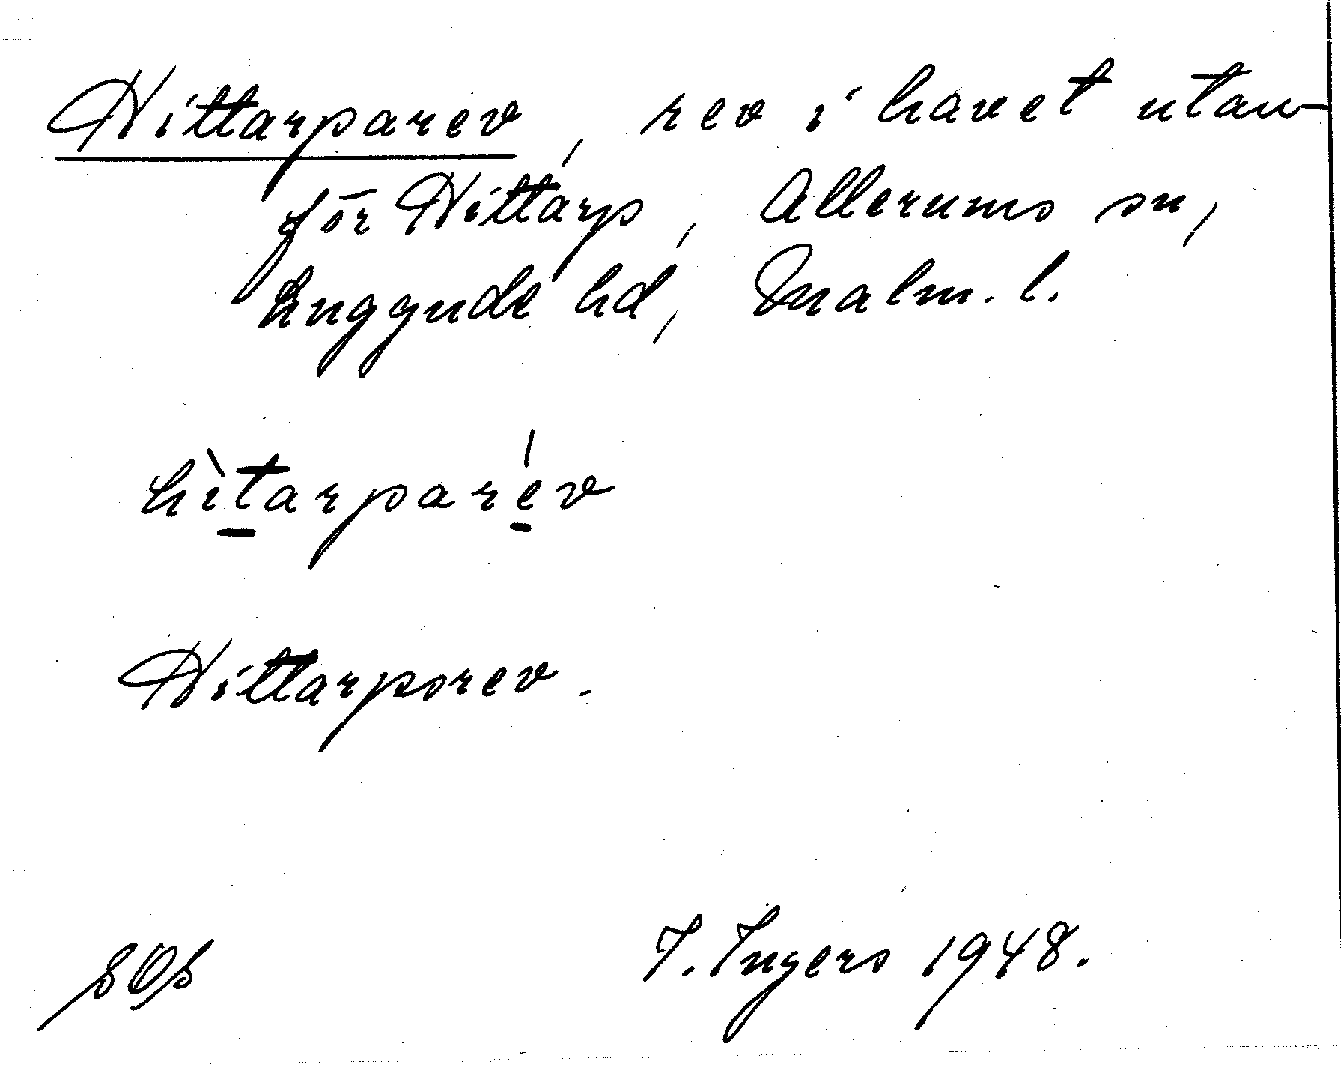 Hittarparev, rev i havet utan-
för Hittarp, Allerums sn,
Luggude hd, Malm. l.
hìtarparév
Hittarporev.
SOS
I. Ingers 1948.